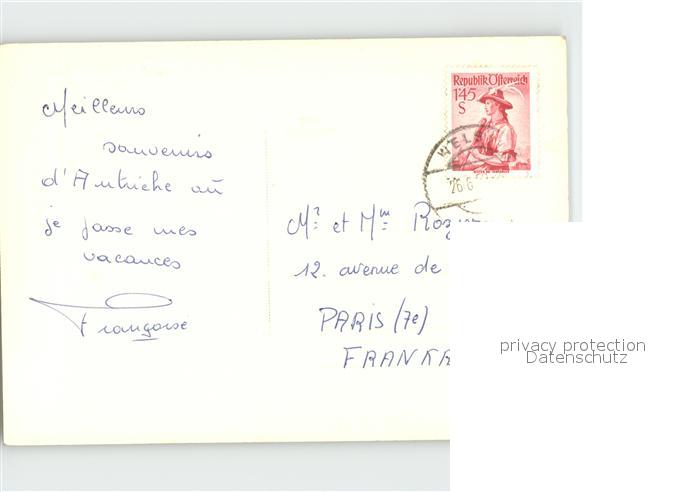 Meilleurs
souvenirs
d'Autriche où
je passe mes
vacances
Françoise
Republik Österreich
1'45
S
WELS
26.6
Mr et Mme
12. avenue de
PARIS (7e)
FRANKR
privacy protection
Datenschutz